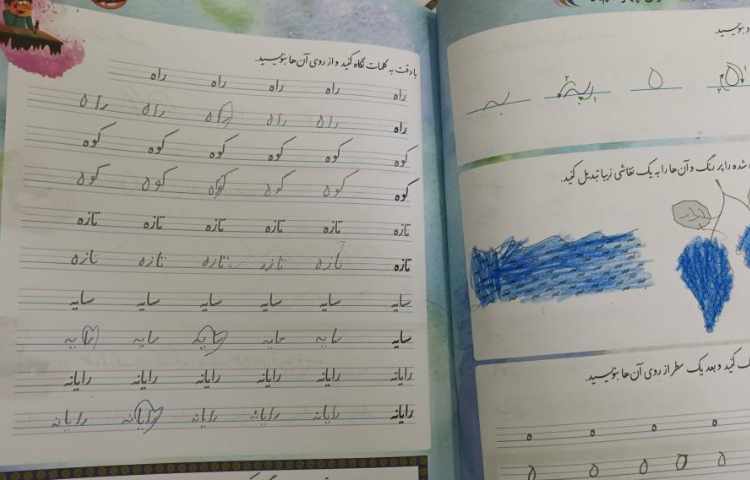 با دقت به کلمات نگاه کنید و از روی آن‌ها بنویسید.
راه راه راه راه راه
راه راه راه راه راه راه
کوه کوه کوه کوه کوه کوه
کوه کوه کوه کوه کوه کوه
تازه تازه تازه تازه تازه تازه
تازه تازه تازه تازه تازه تازه
سایه سایه سایه سایه سایه سایه
سایه سایه سایه سایه سایه سایه
رایانه رایانه رایانه رایانه رایانه رایانه
رایانه رایانه رایانه رایانه رایانه رایانه
بنویسید
ه
شده را پر رنگ و آن‌ها را به یک نقاشی زیبا تبدیل کنید.
کنید و بعد یک سطر از روی آن‌ها بنویسید.
ه ه ه ه
ه ه ه ه ه